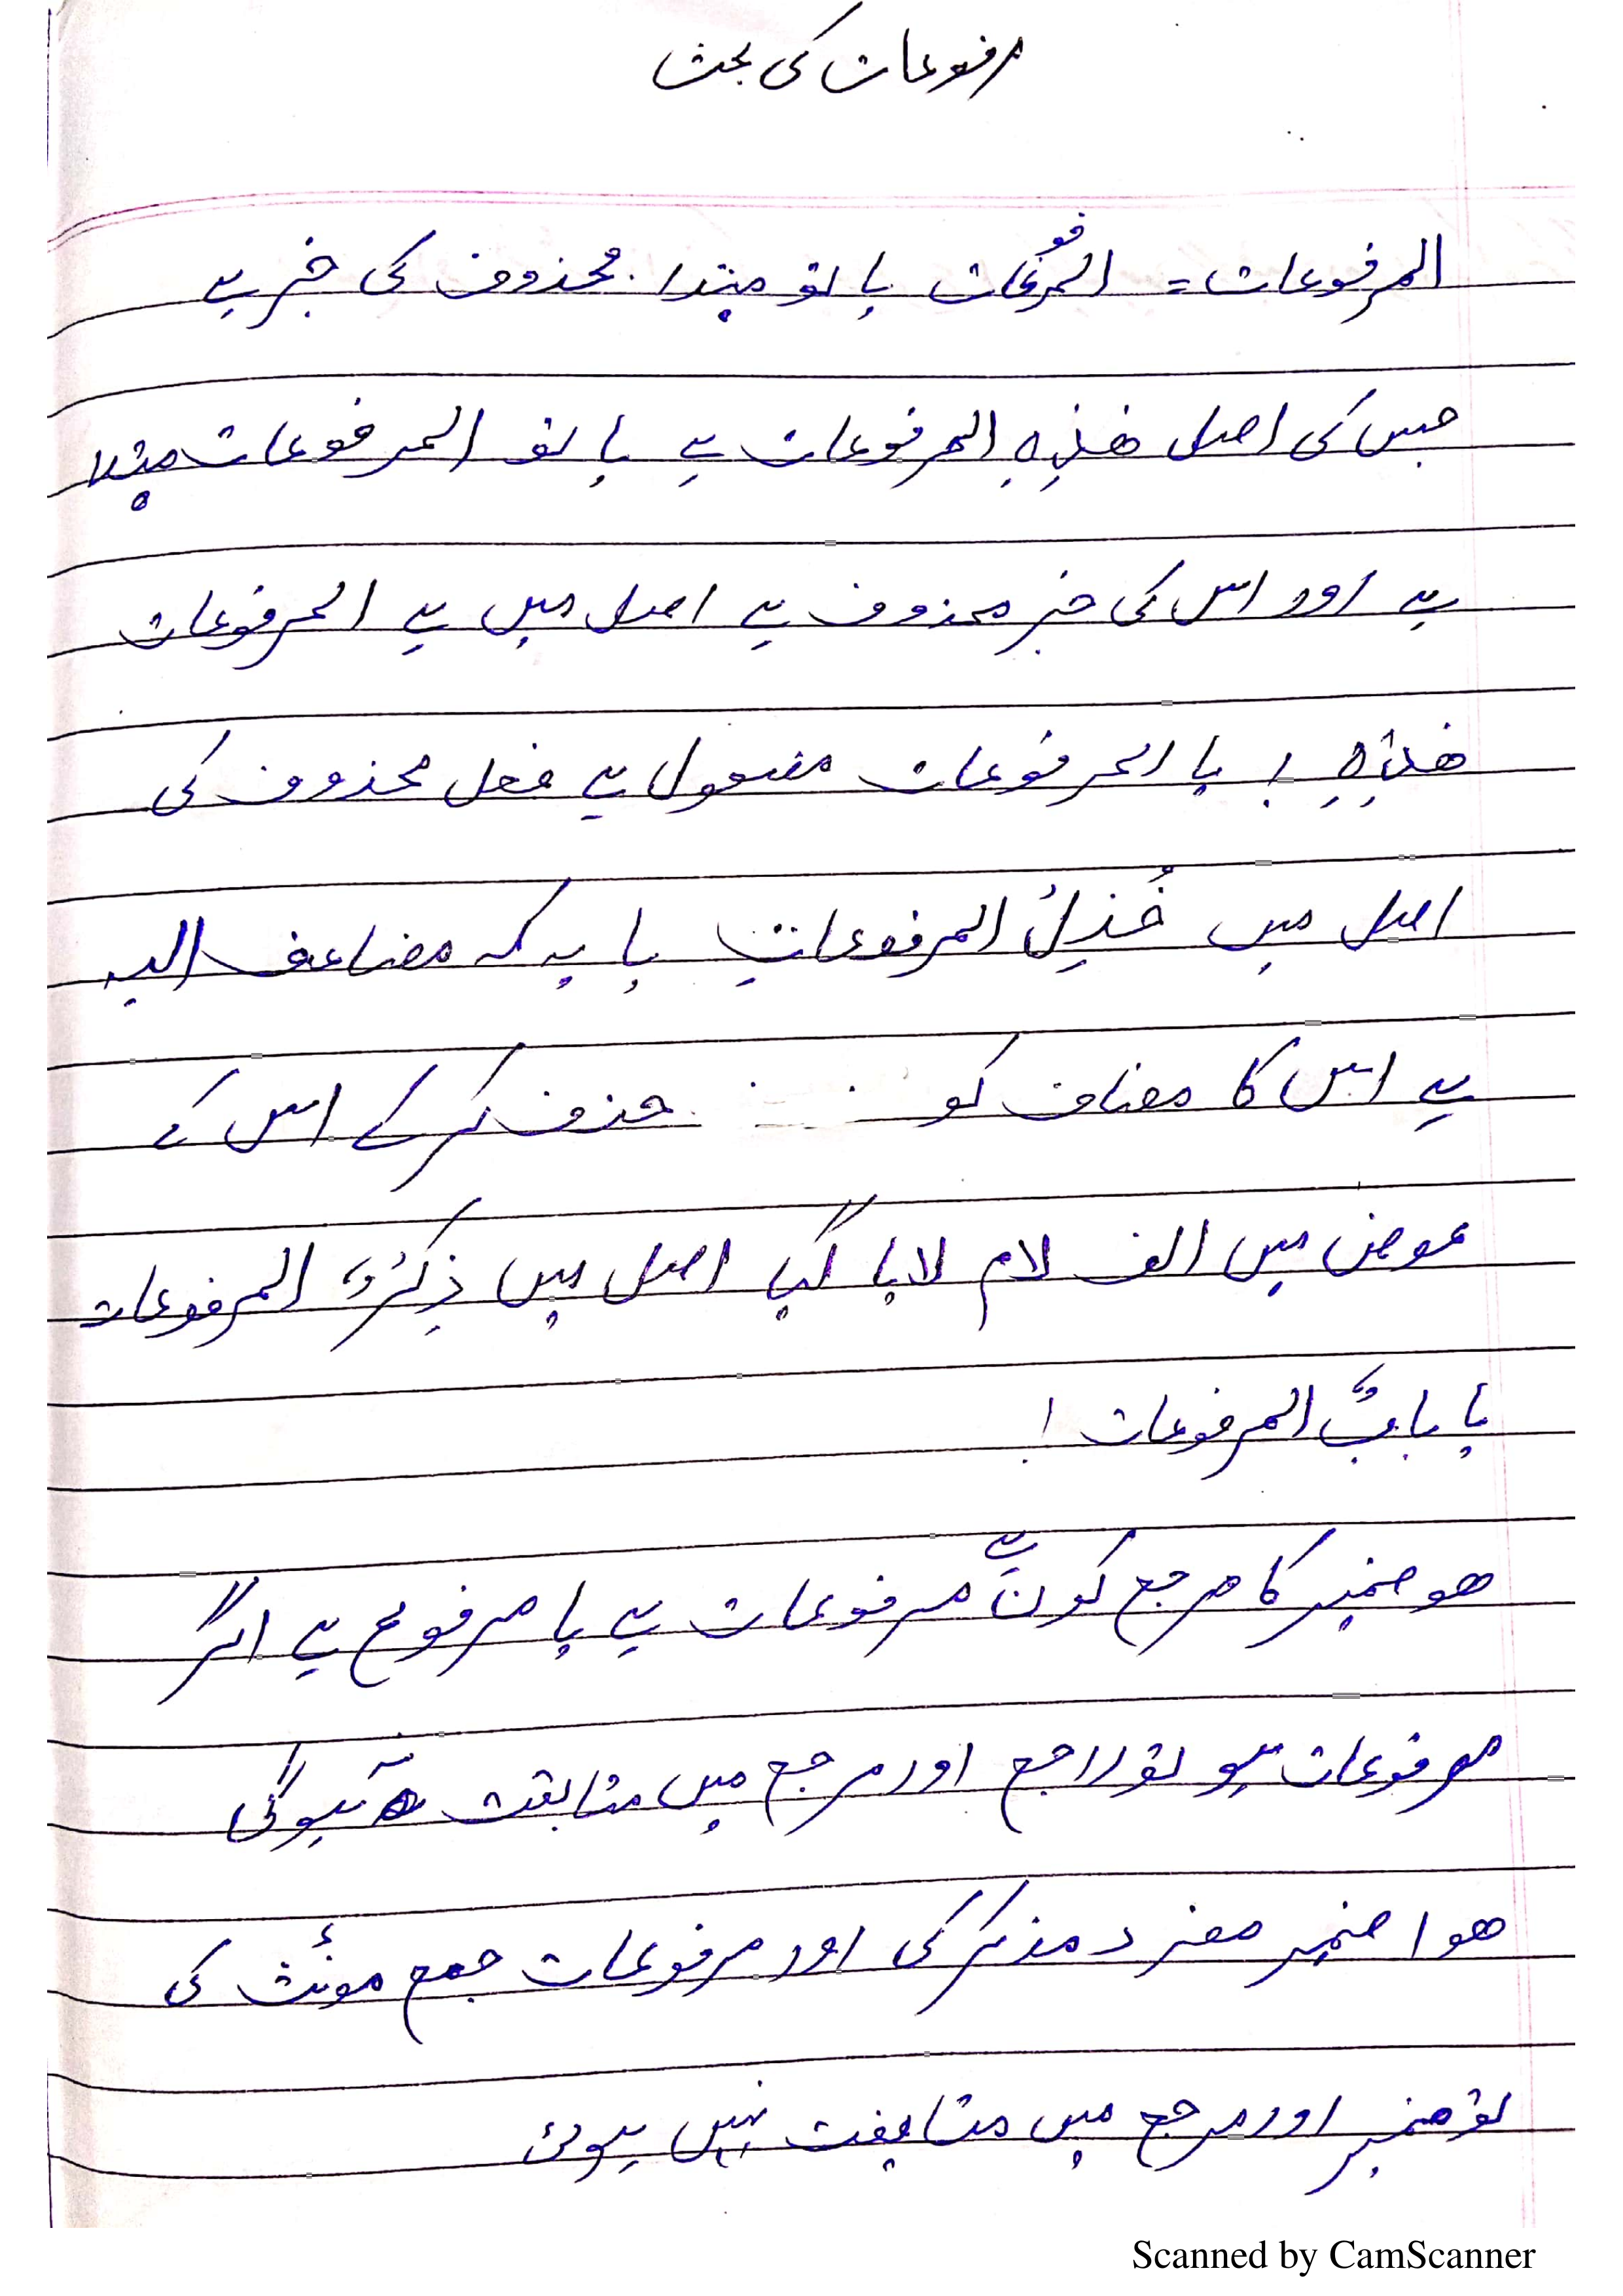 مرفوعات کی بحث
المرفوعات = المرفوعات یا تو مبتدا محذوف کی خبر ہے
جس کی اصل ھٰذِہِ المرفوعات ہے یا تو المرفوعات مبتدا
ہے اور اس کی خبر محذوف ہے اصل میں ہے المرفوعات
ھٰذِہِ ! یا المرفوعات مفعول ہے فعل محذوف کی
اصل میں خُذِلُ المرفوعاتِ یا یہ کہ مضاعف الیہ
ہے اس کا مضاف کو حذف کرکے اس کے
عوض میں الف لام لایا گیا اصل میں ذِکرُ المرفوعات
یا بابُ المرفوعات !
ھو ضمیر کا مرجع کون ہے مرفوعات ہے یا مرفوع ہے اگر
مرفوعات ہو تو راجع اور مرجع میں متابقت نہ ہوگی
ھو ا ضمیر مفرد مذکر کی اور مرفوعات جمع مؤنث کی
تو ضمیر اور مرجع میں متابقت نہیں ہوئ
Scanned by CamScanner